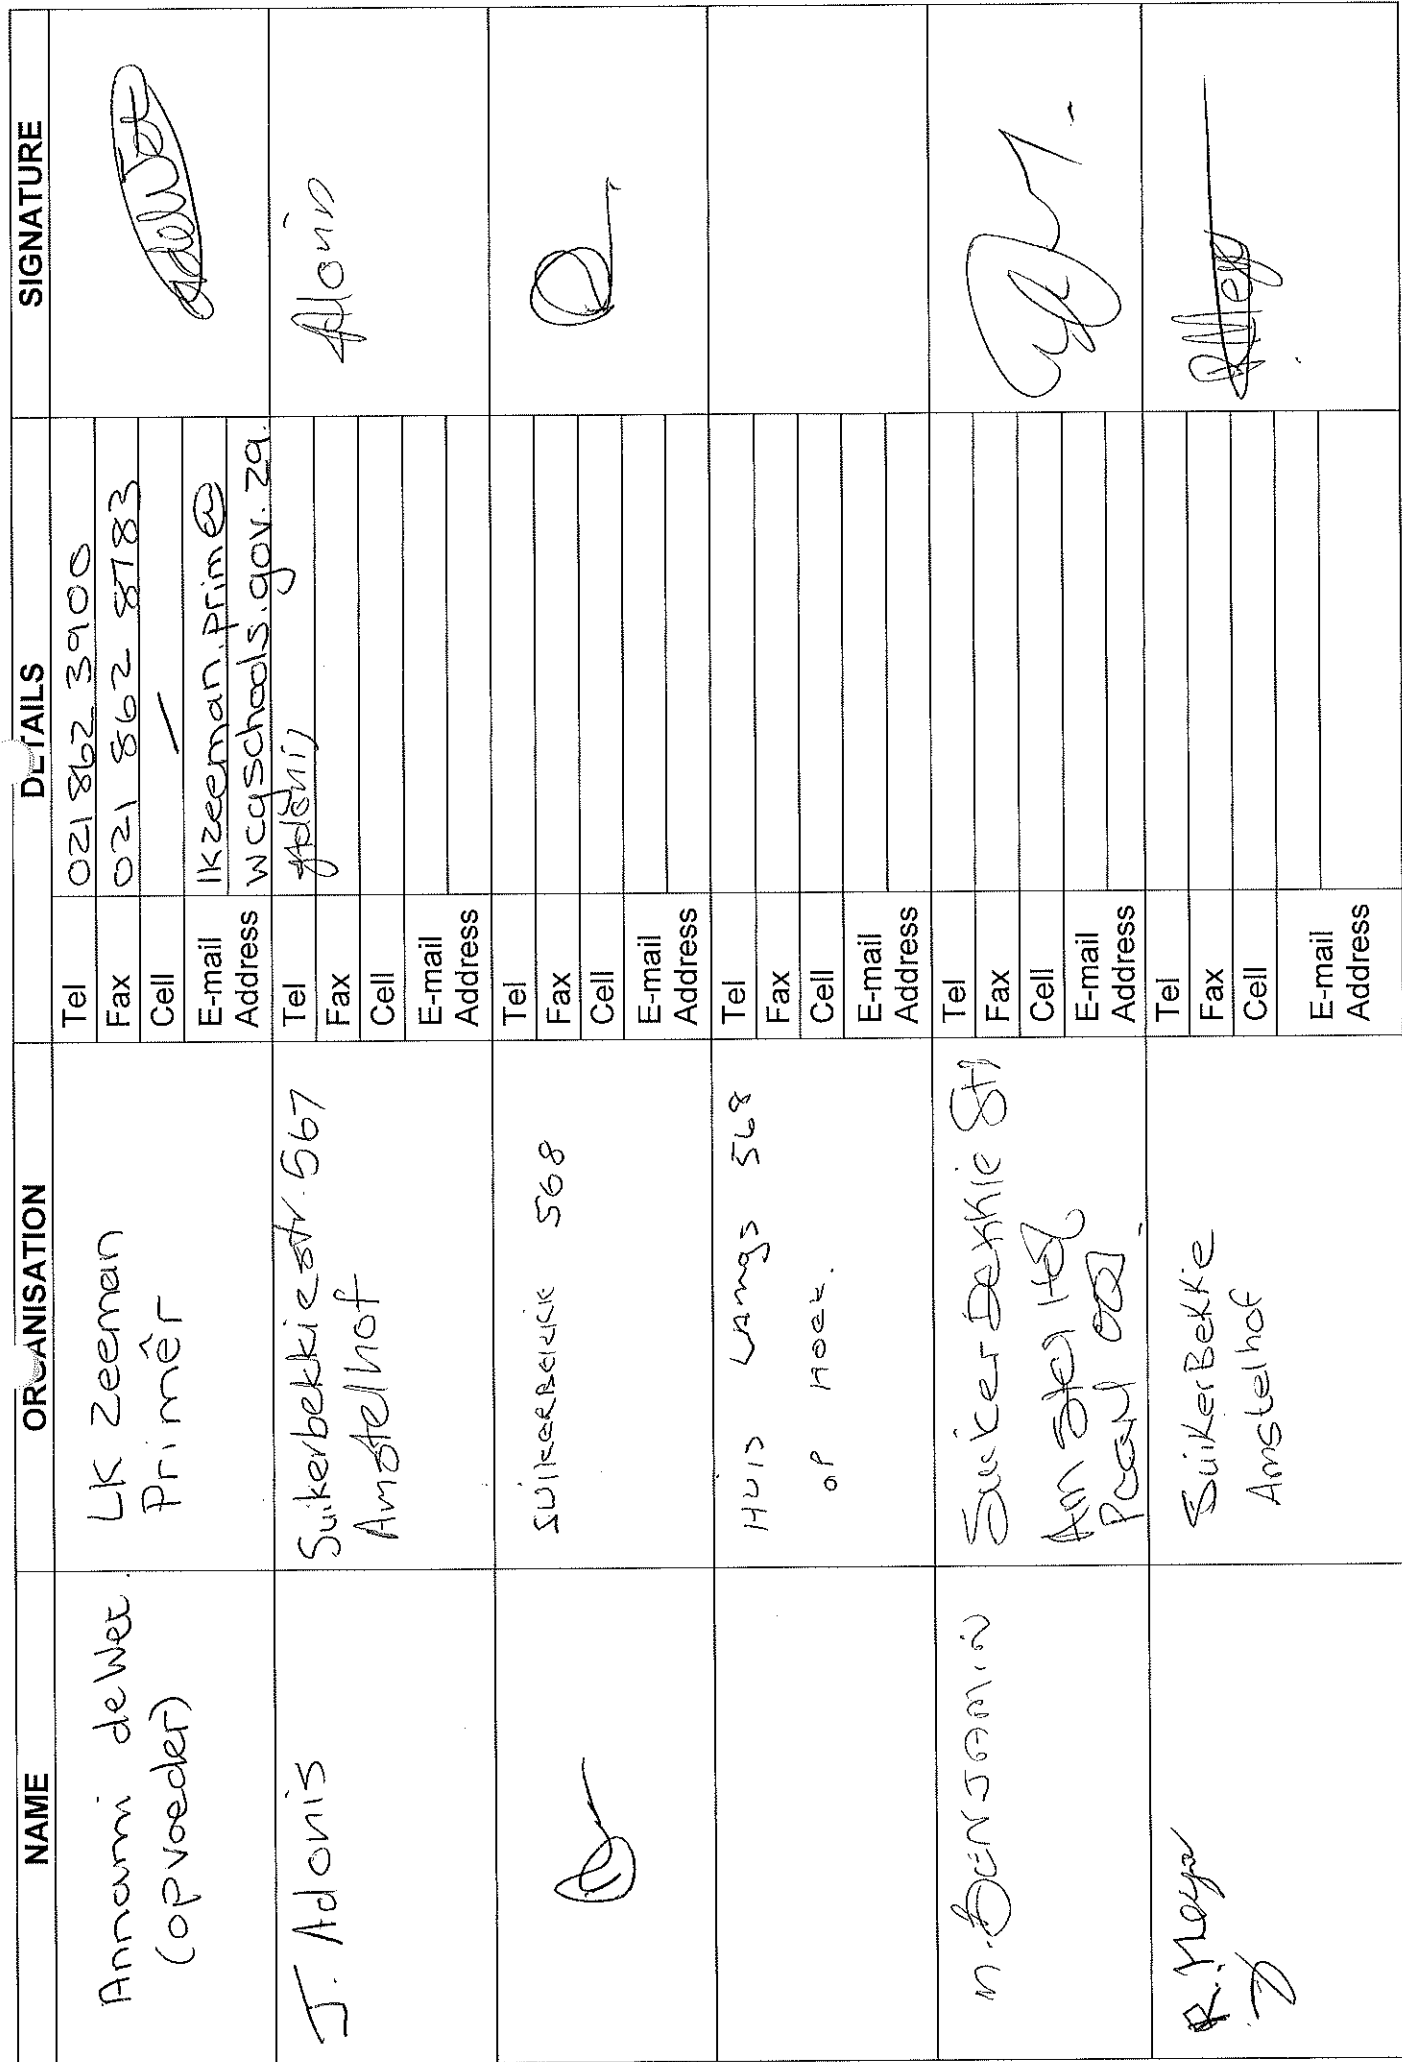 NAME ORGANISATION DETAILS SIGNATURE
Annami de Wet.
(opvoeder)
LK Zeeman
Primêr
Tel 021 862 3900
Fax 021 862 8783
Cell
E-mail lkzeeman.prim@
Address wcgschools.gov.za.
J. Adonis
Suikerbekkie str. 567
Amstelhof
Tel
Fax
Cell
E-mail
Address
SUIKERBEKKIE 568
Tel
Fax
Cell
E-mail
Address
HUIS LANGS 568
OP HOEK.
Tel
Fax
Cell
E-mail
Address
M. BENJAMIN
Suikerbekkie Str
Amstel Hof
Paarl
Tel
Fax
Cell
E-mail
Address
R.
SuikerBekkie
Amstelhof
Tel
Fax
Cell
E-mail
Address